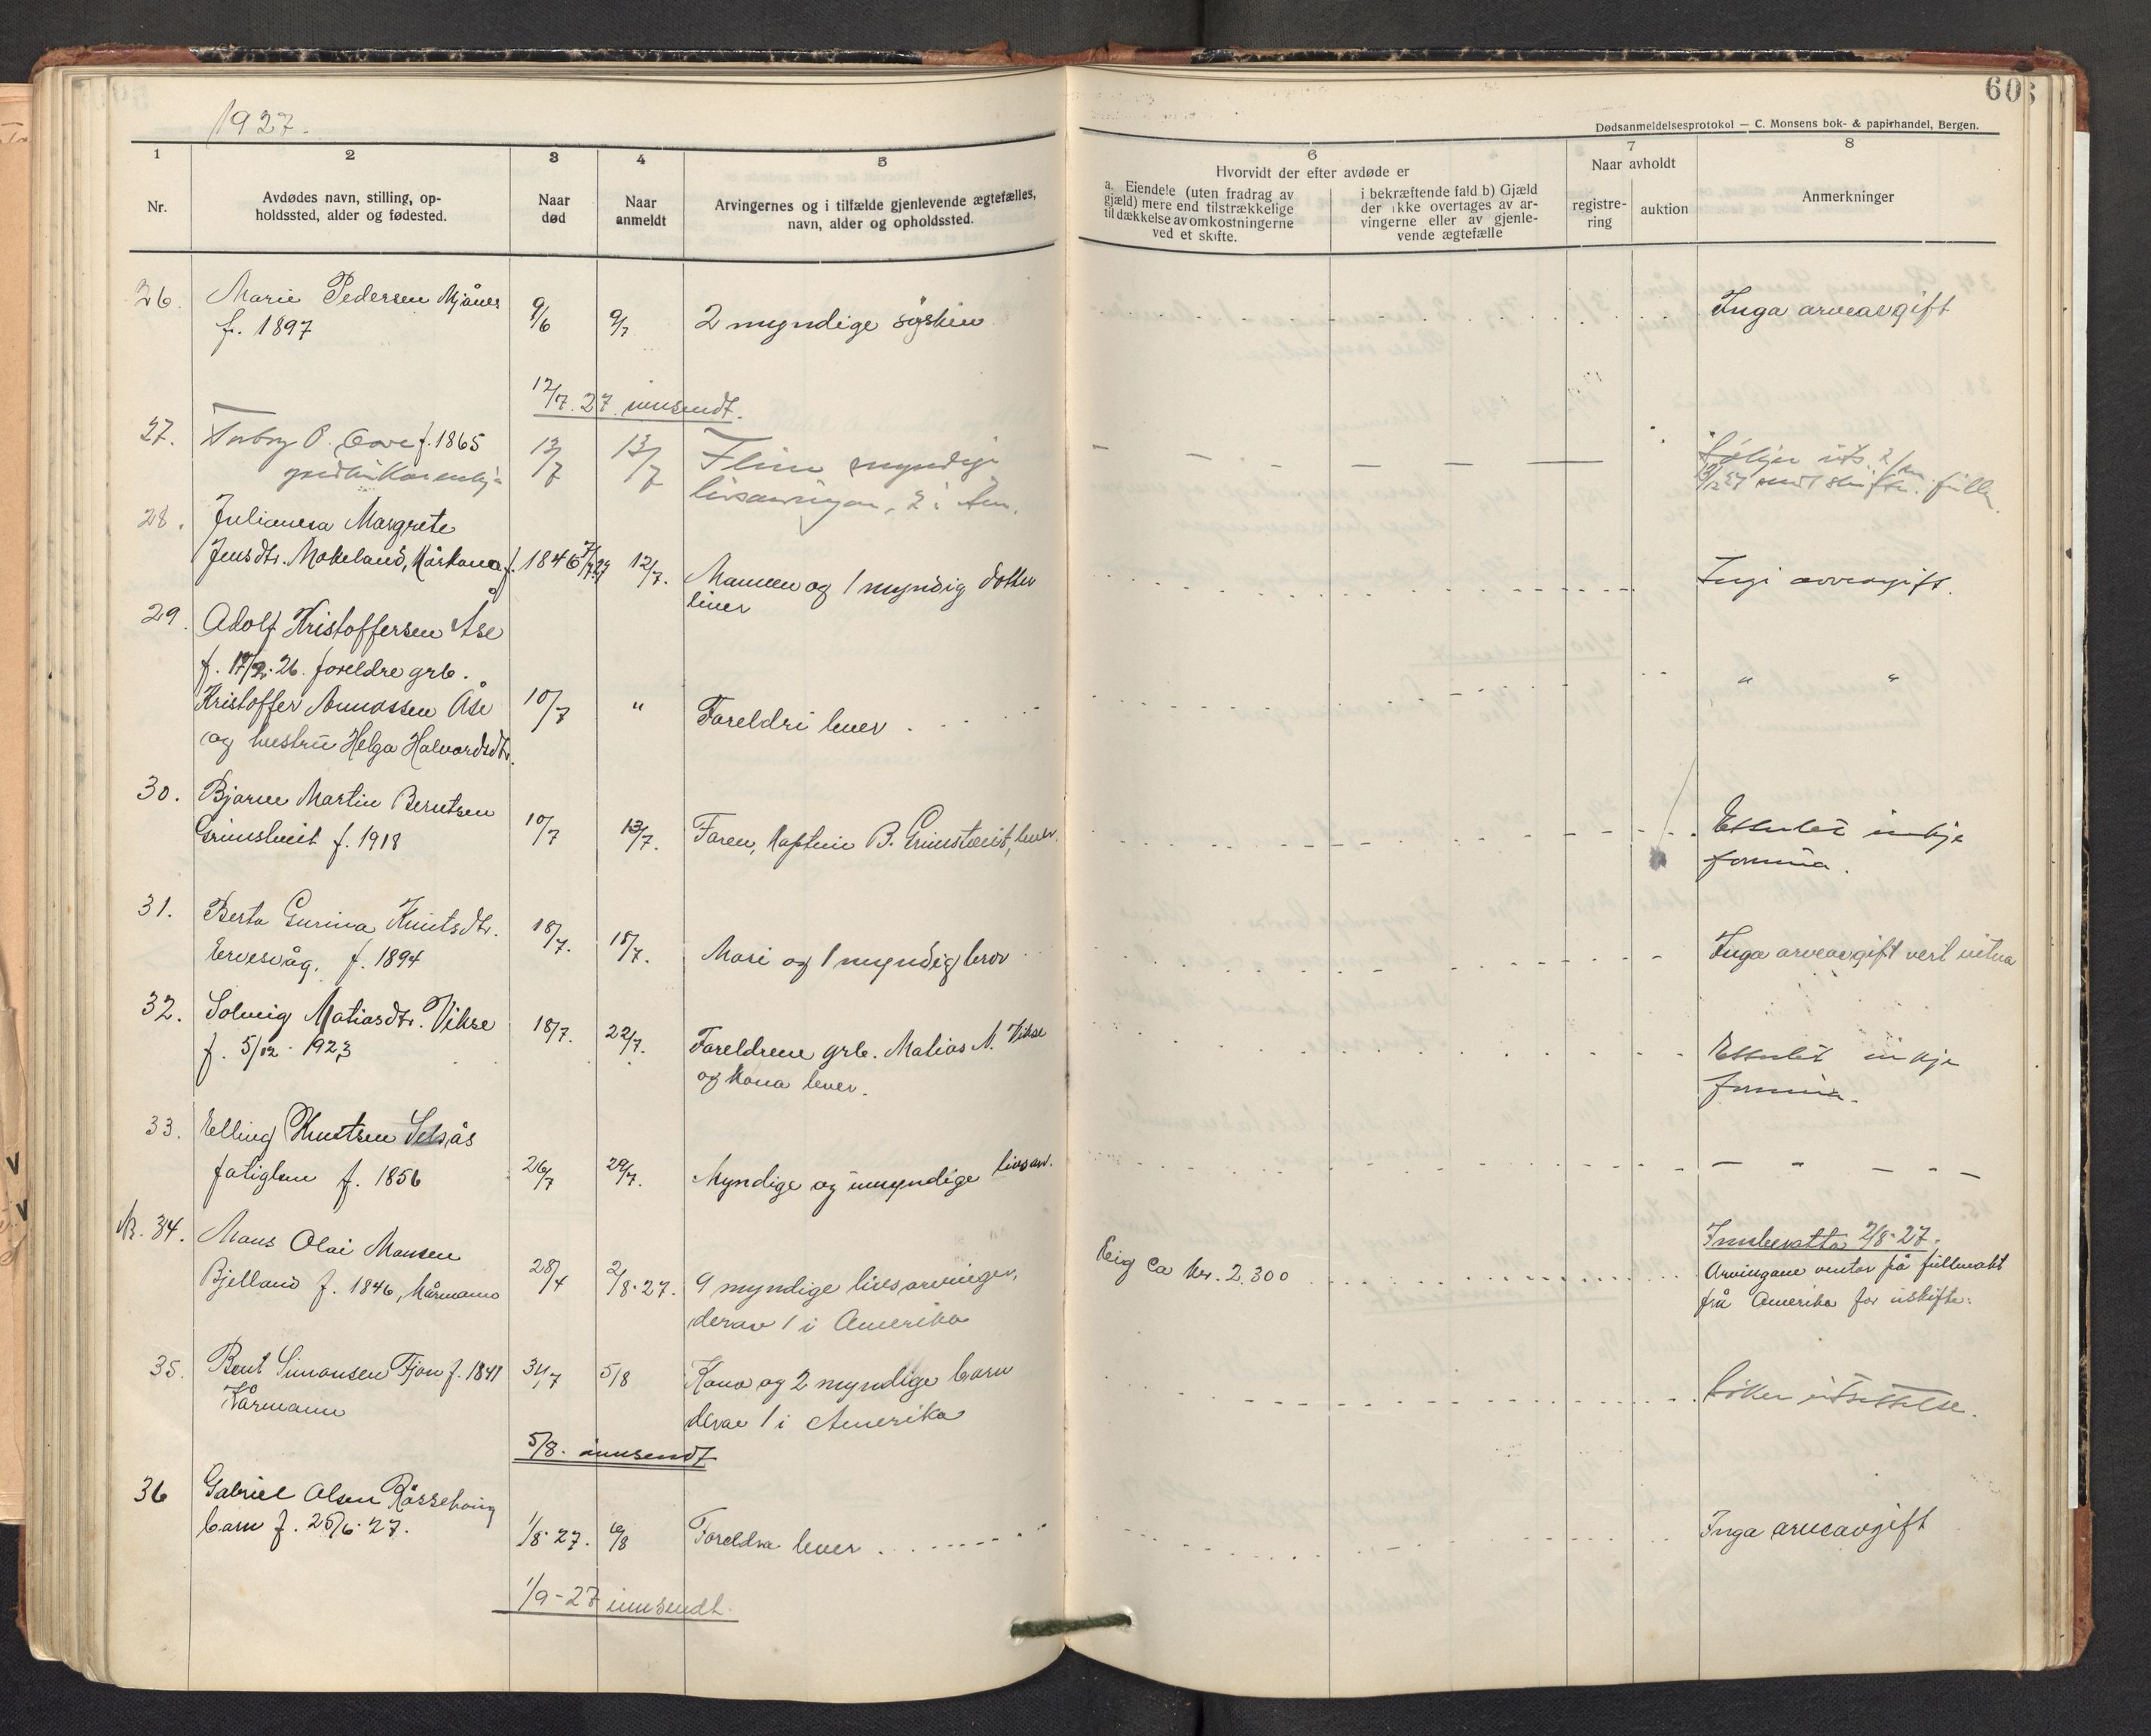 1927.
60
Dødsanmeldelsesprotokol — C. Monsens bok- & papirhandel, Bergen.
1 2 3 4 5 6 7 8
Nr.
Avdødes navn, stilling, op-
holdssted, alder og fødested.
Naar
død
Naar
anmeldt
Arvingernes og i tilfælde gjenlevende ægtefælles,
navn, alder og opholdssted.
Hvorvidt der efter avdøde er
a. Eiendele (uten fradrag av
gjæld) mere end tilstrækkelige
til dækkelse av omkostningerne
ved et skifte.
i bekræftende fald b) Gjæld
der ikke overtages av ar-
vingerne eller av gjenle-
vende ægtefælle
Naar avholdt
registre-
ring
auktion
Anmerkninger
26. Marie Pedersen Mjånes
f. 1897
9/6 9/7 2 myndige søskin
Inga arveavgift
12/7.27 innsendt.
27. f. 1865
13/7 13/7 myndige
livsarvingar, 2 i Am.
28. Julianna Margrete
Jensdtr. Mokeland, Kårkona f. 1846 7/7 27 12/7. Mannen og 1 myndig dotter
liver
arveavgift.
29. Adolf Kristoffersen Åse
f. 26. foreldre grb.
Kristoffer Åse
og hustru Helga Halvardsdtr.
10/7 " Foreldri lever
" "
30. Bjarne Martin Berntsen
Grimstveit f. 1918
10/7 13/7. Faren, Kaptein B. Grimstveit, lever.
Etterlet inkje
formua.
31. Berta Gurina Knutsdtr.
Ervesvåg. f. 1894
18/7. 18/7. Mori og 1 myndig bror
Inga arveavgift vert
32. Solveig Matiasdtr. Vikse
f. 5/12 1923
18/7. 22/7. Foreldrene grb. Matias N. Vikse
og kona lever.
Etterlet inkje
formua.
33. Elling Knutsen Selsås
fatiglem f. 1856
26/7 29/7. Myndige og umyndige livsarv.
Nr. 34. Mons Olai Monsen
Bjelland f. 1846, kårmann
28/4 2/8-27. 9 myndige livsarvinger,
derav 1 i Amerika
Eig ca kr. 2.300
Innberetta 2/8-27.
Arvingane ventar på fullmakt
frå Amerika for uskifte.
35. Bent Simonsen Fjon f. 1841
Kårmann
31/7 5/8 Kona og 2 myndige barn
derav 1 i Amerika
Søker utsettelse.
5/8. innsendt
36 Gabriel Olsen Røssehaug
barn f. 25/6-27.
1/8-27. 6/8 Foreldra lever
Inga arveavgift
1/9-27 innsendt.